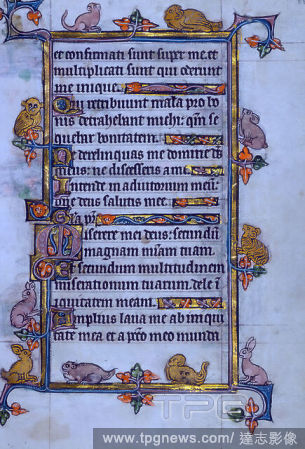 et confirmati sunt super me. et
multiplicati sunt qui oderunt
me inique.
Qui retribuunt mala pro bo
nis detrahebant michi: qm̄ se
quebar bonitatem.
Ne derelinquas me domine ds̄
meus: ne discesseris a me.
Intende in adiutorium meū:
dne deus salutis mee.
Gl̄a pr̄i
Miserere mei deus: secundū
magnam miam̄ tuam.
Et secundum multitudinem
miserationum tuarum: dele i
iquitatem meam.
Amplius laua me ab iniqui
tate mea: et a pctō meo munda
TPG
www.tpgnews.com/達志影像